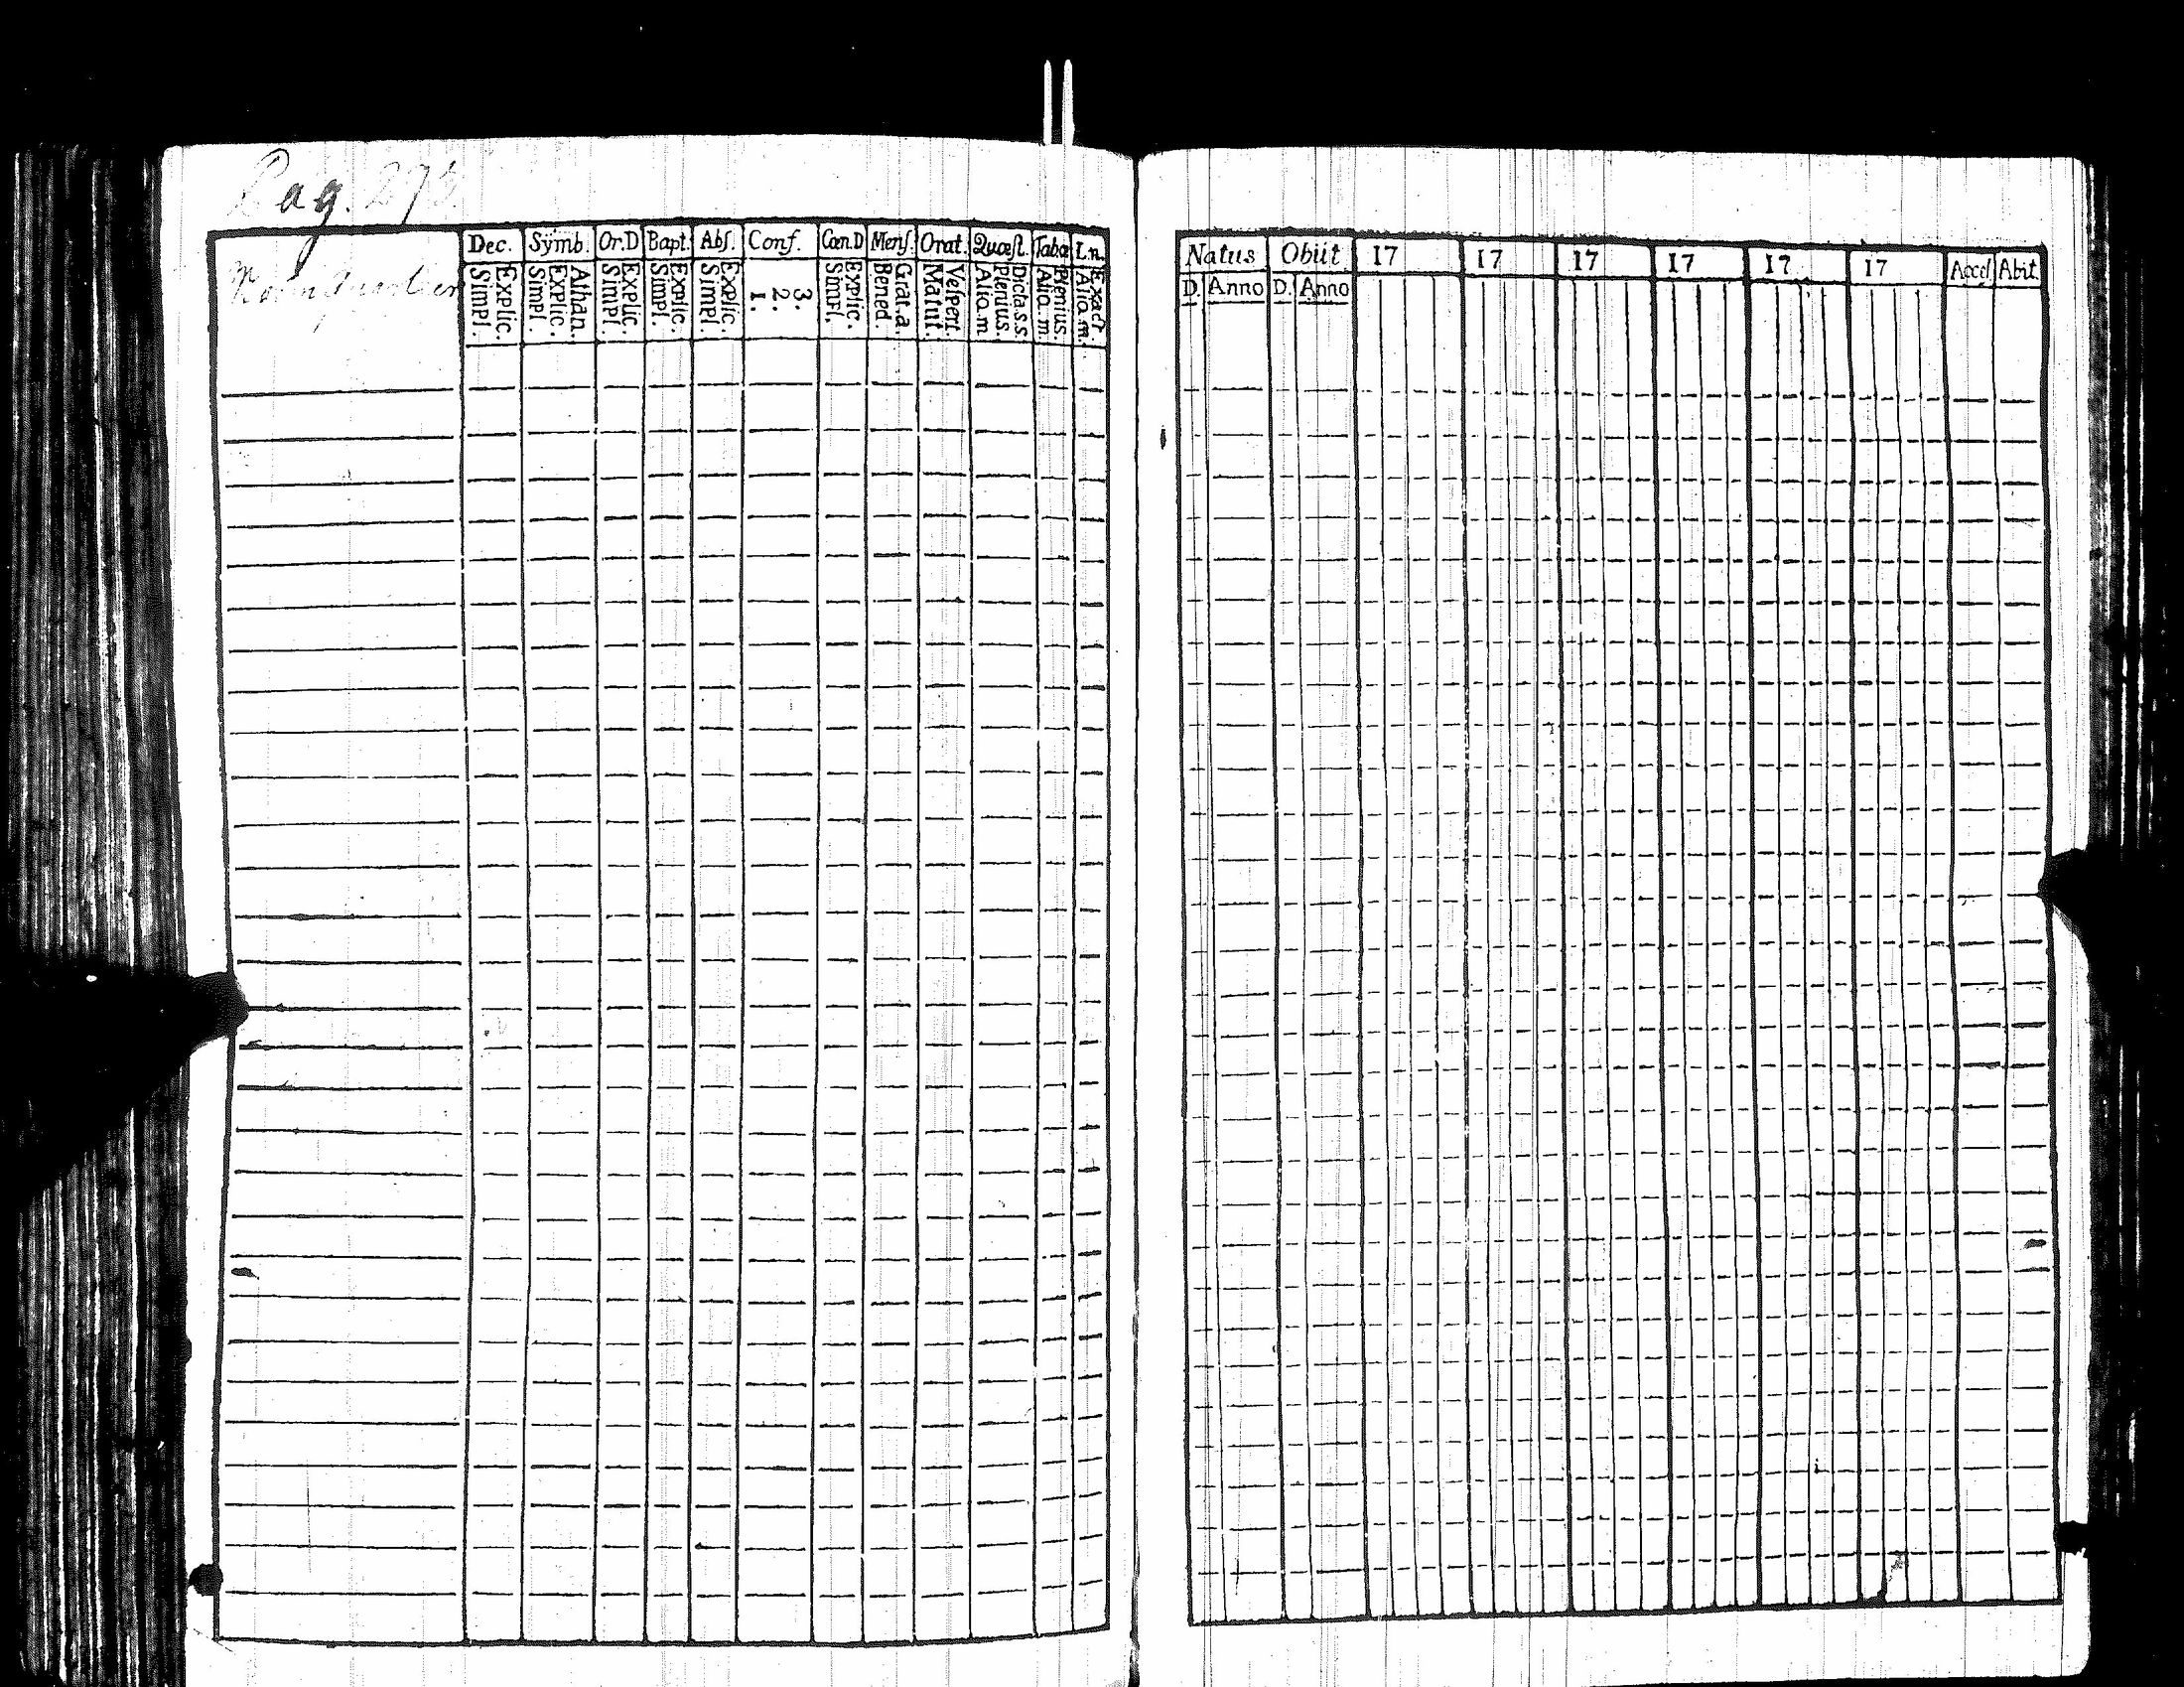 Pag. 273.
Dec. Symb. Or.D Bapt. Abſ. Conf. Cœn.D Menſ. Orat. Quæſt. Taba L.n.
Simpl. Explic.
Simpl. Explic. Athan.
Simpl. Explic.
Simpl. Explic.
Simpl. Explic.
1. 2. 3.
Simpl. Explic.
Bened. Grat.a.
Matut. Veſpert.
Alio.m Plenius. Dicta.s.s.
Alio.m. Plenius.
Alio.m. Exact.
Natus Obiit 17 17 17 17 17 17 Acceſ Abit.
D. Anno D. Anno